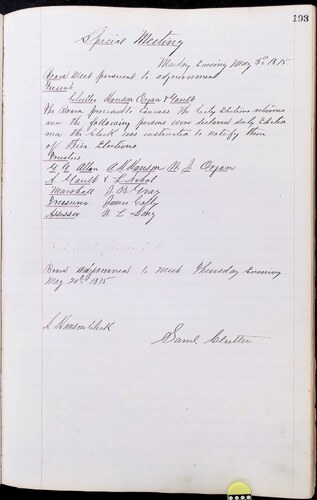 193
Special Meeting
Monday Evening May 3rd 1875
Board Meet persuent to adjournment
Present
Clutter Hanson Organ & Gault
The Board proceeded to Canvass the City Election returns
and the following persons were declared duly Elected
and the Clerk was instructed to notify them
of their Elections
Trustees
G. G. Allan A M Hanson W. J. Organ
A Gault &
Marshall O. B. Gray
Treasurer James
Assessor W. L.
Board adjourned to meet Thursday Evening
May 20th 1875
Hanson Clerk
Saml Clutter